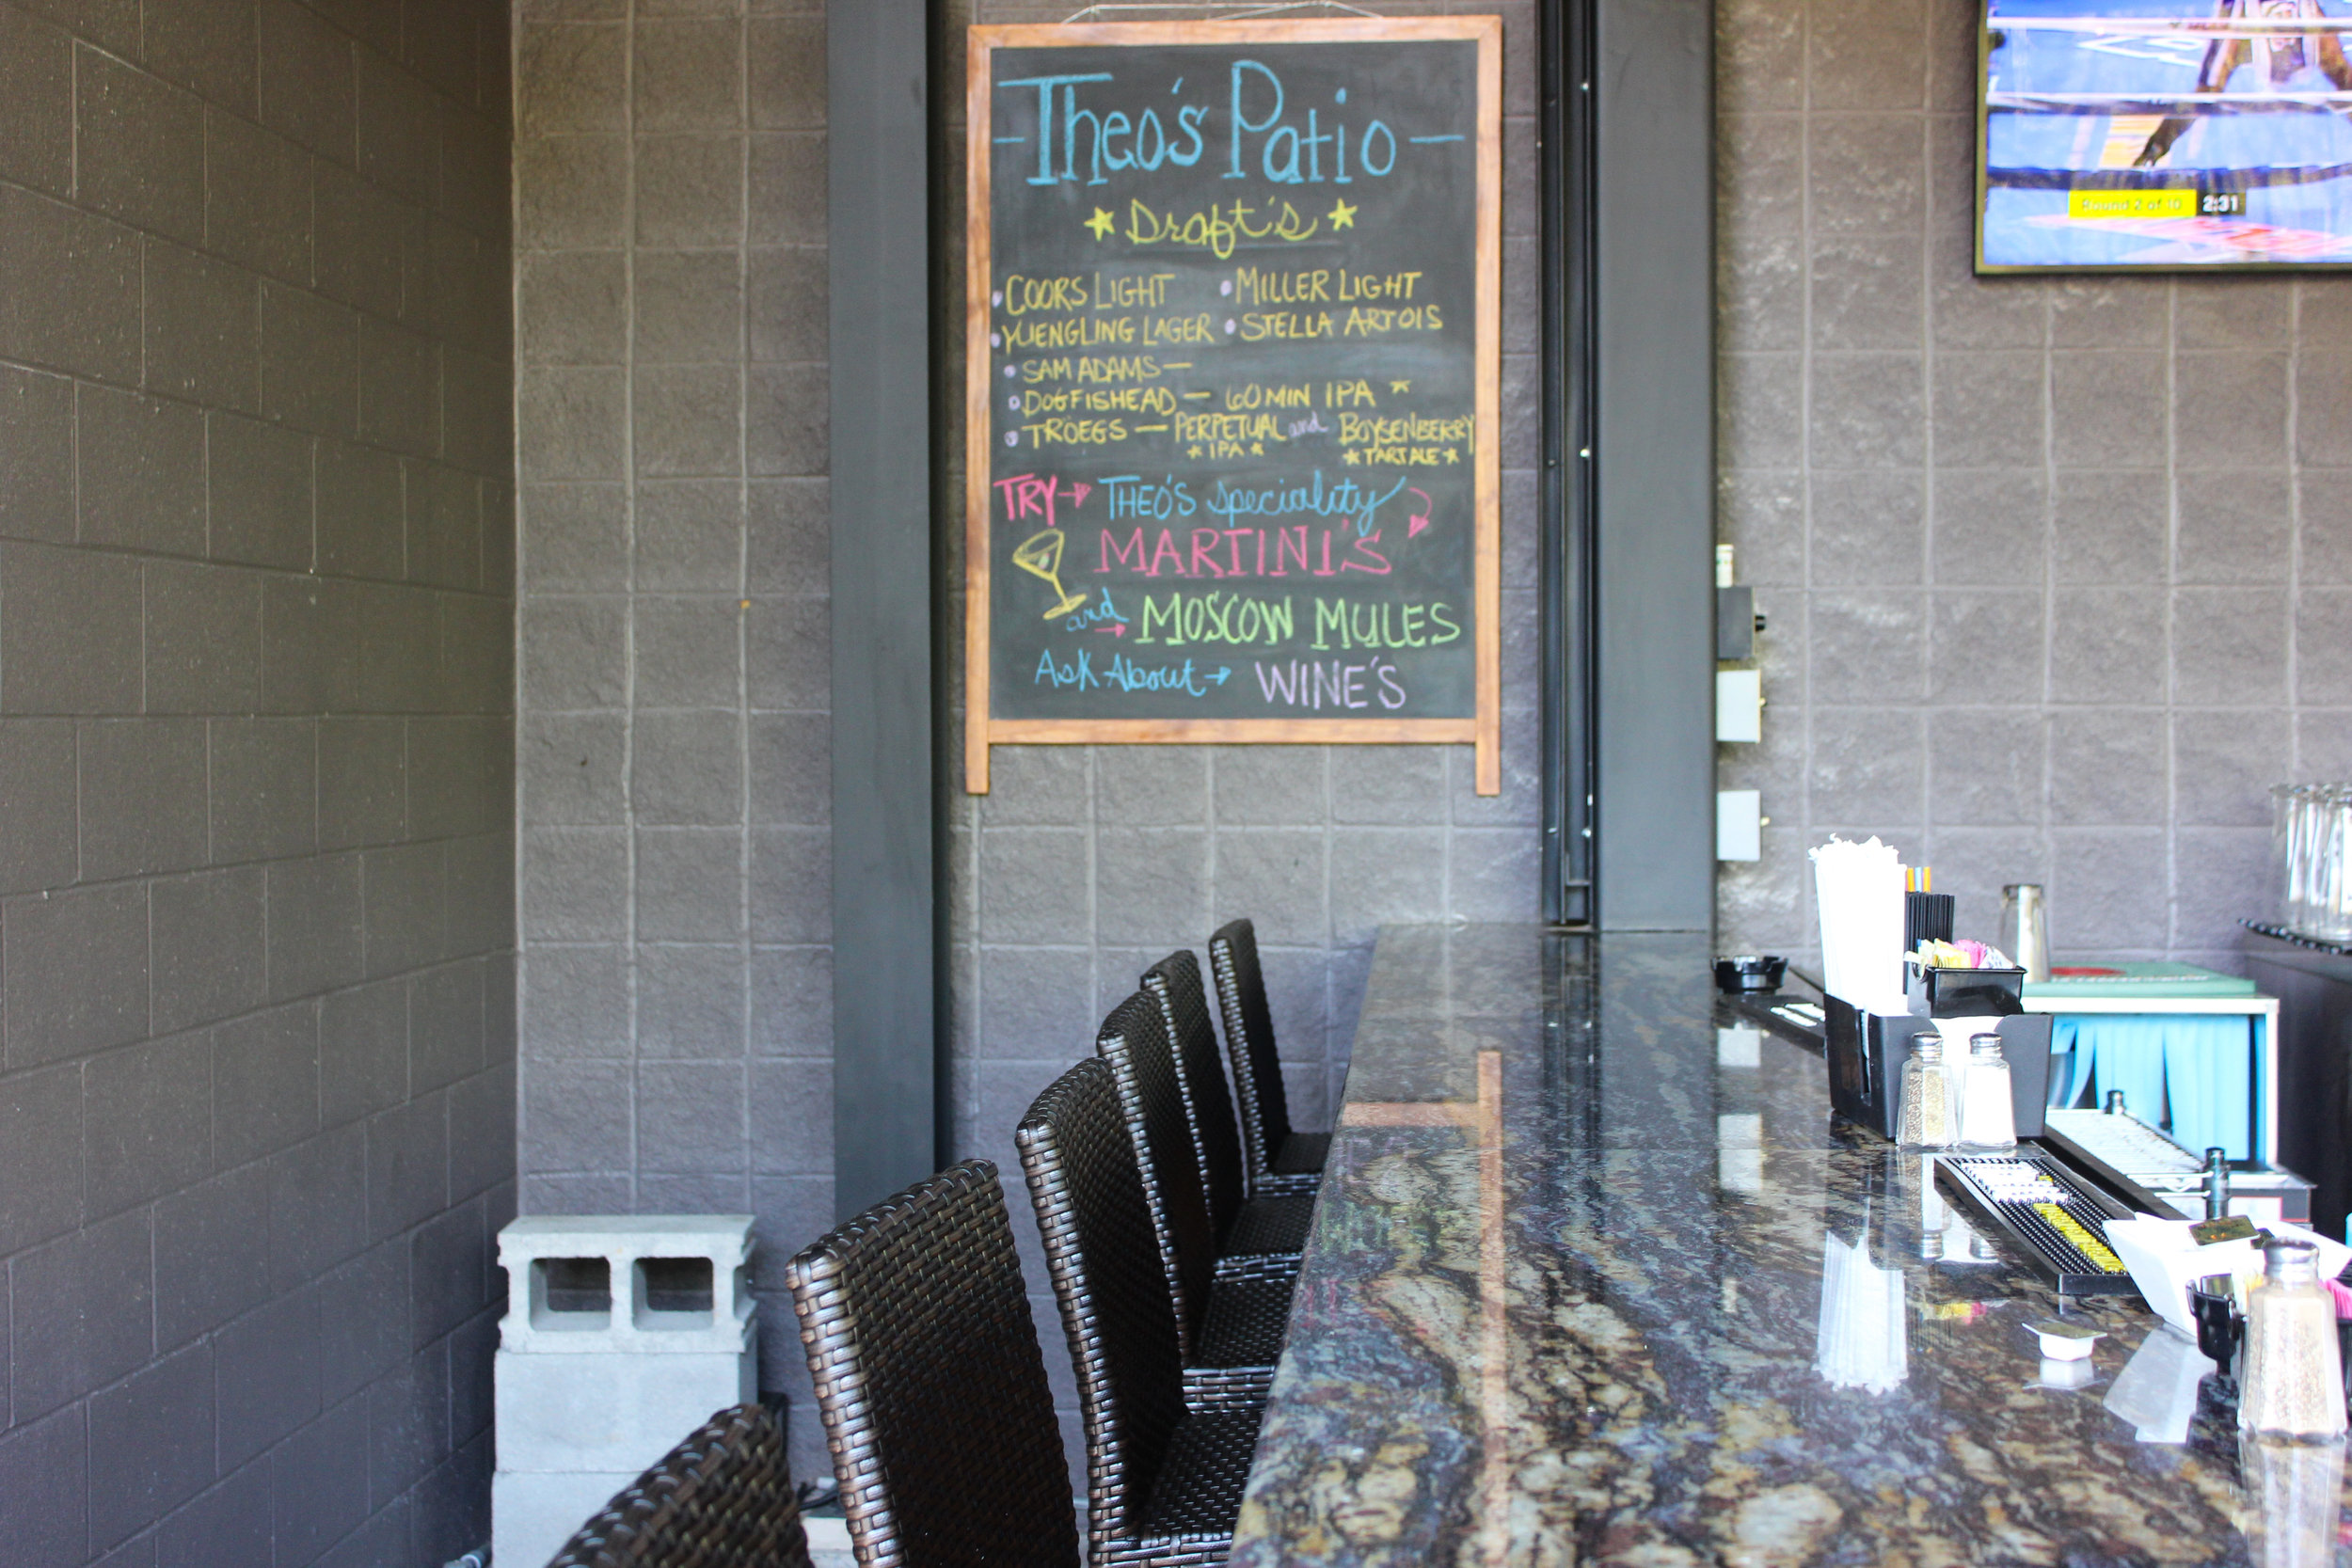 Theo's Patio
Draft's
COORS LIGHT
MILLER LIGHT
YUENGLING LAGER
STELLA ARTOIS
SAM ADAMS —
DOGFISHEAD — 60 MIN IPA
TRÖEGS — PERPETUAL and BOYSENBERRY
IPA
TART ALE
TRY → THEO'S speciality
MARTINI'S
and → MOSCOW MULES
Ask About → WINE'S
Round 2 of 10 2:31